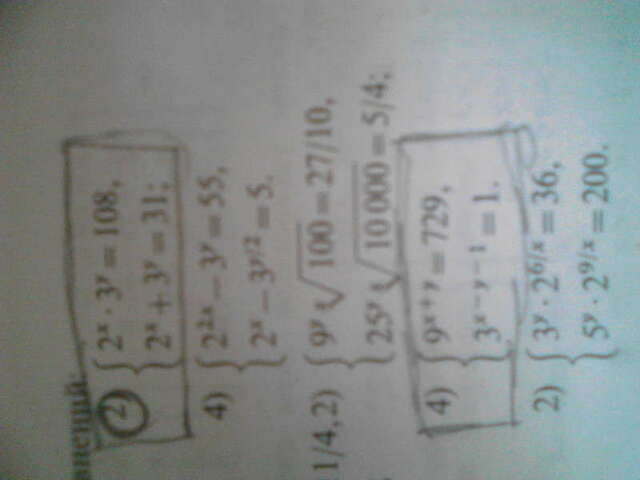 внений.
2) { 2ˣ · 3ʸ = 108,
2ˣ + 3ʸ = 31;
4) { 2²ˣ − 3ʸ = 55,
2ˣ − 3ʸᐟ² = 5.
1/4, 2) { 9ʸ √100 = 27/10,
25ʸ √10 000 = 5/4;
4) { 9ˣ⁺ʸ = 729,
3ˣ⁻ʸ⁻¹ = 1.
2) { 3ʸ · 2⁶ᐟˣ = 36,
5ʸ · 2⁹ᐟˣ = 200.